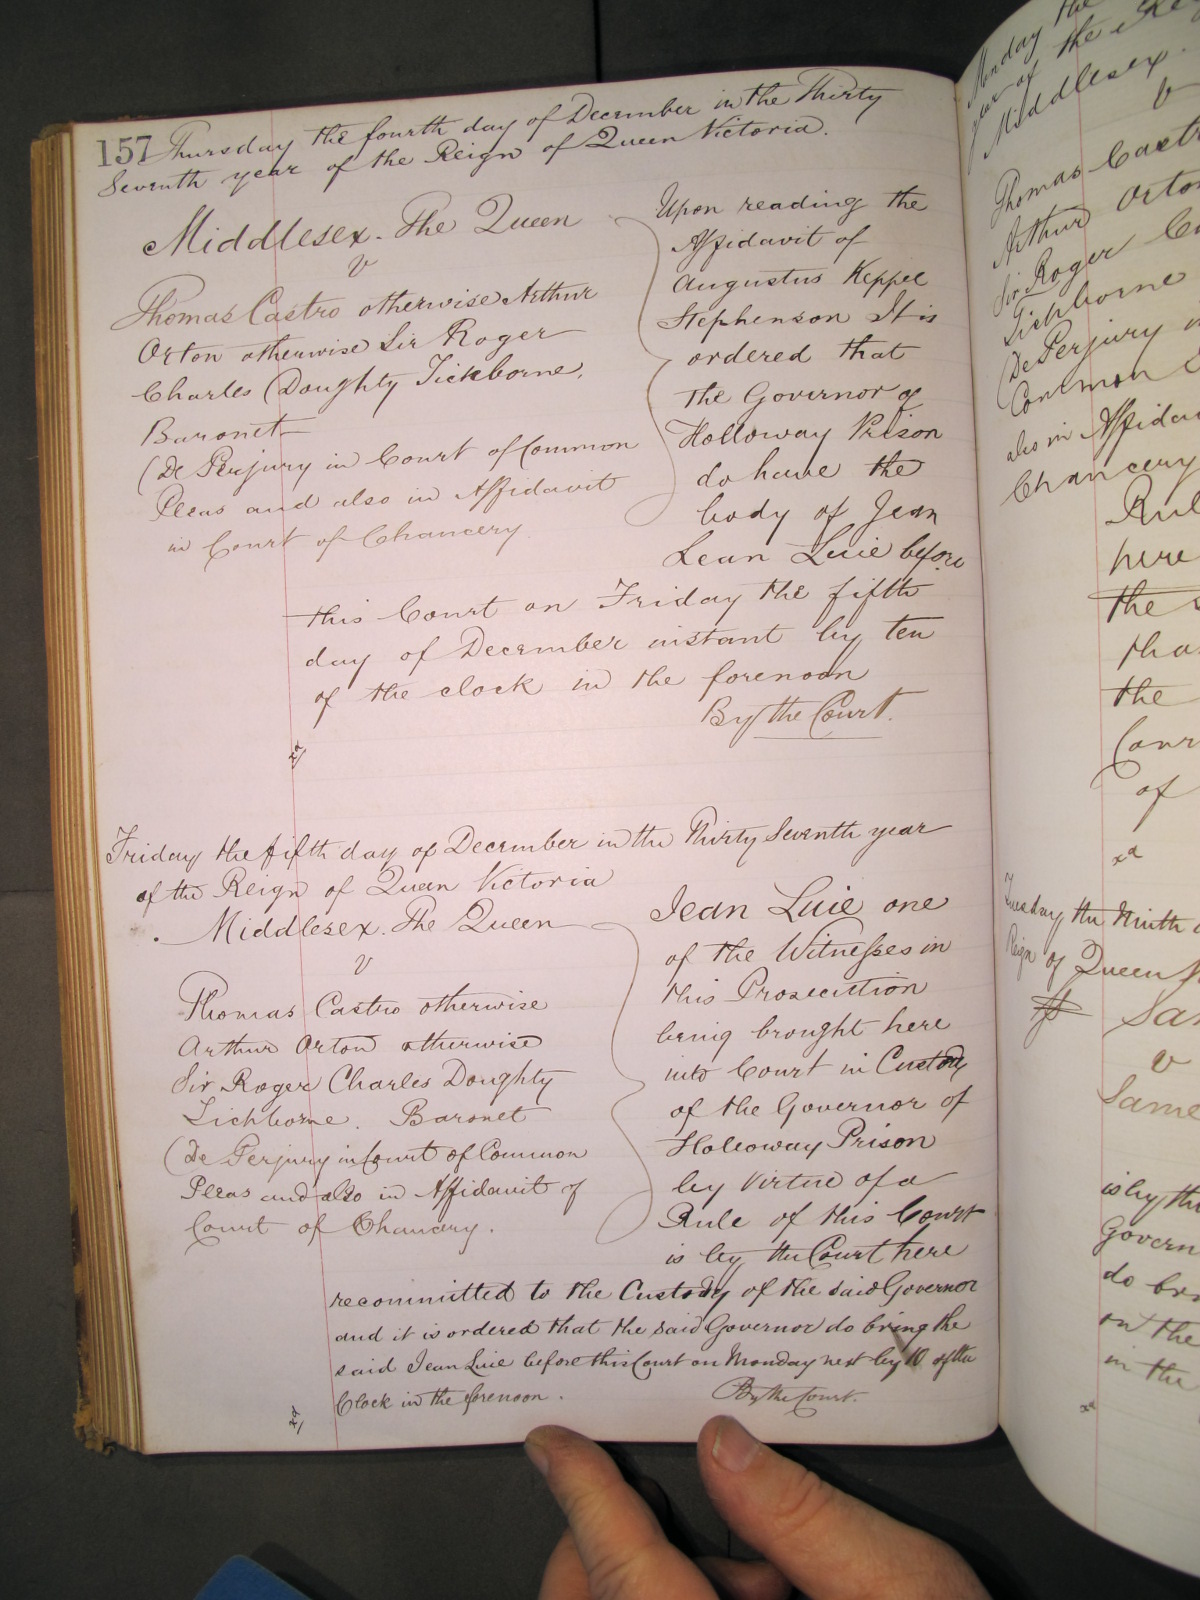 157 Thursday the fourth day of December in the Thirty
Seventh year of the Reign of Queen Victoria.
Middlesex. The Queen
v
Thomas Castro otherwise Arthur
Orton otherwise Sir Roger
Charles Doughty Tichborne,
Baronet
(De Perjury in Court of Common
Pleas and also in Affidavit
in Court of Chancery
Upon reading the
Affidavit of
Augustus Keppel
Stephenson It is
ordered that
the Governor of
Holloway Prison
do have the
body of Jean
Lean Luie before
this Court on Friday the fifth
day of December instant by ten
of the clock in the forenoon
By the Court.
Friday the fifth day of December in the Thirty Seventh year
of the Reign of Queen Victoria
Middlesex. The Queen
v
Thomas Castro otherwise
Arthur Orton otherwise
Sir Roger Charles Doughty
Tichborne. Baronet
(De Perjury in Court of Common
Pleas and also in Affidavit of
Court of Chancery.
Jean Luie one
of the Witnesses in
this Prosecution
being brought here
into Court in Custody
of the Governor of
Holloway Prison
by Virtue of a
Rule of this Court
is by the Court here
recommitted to the Custody of the said Governor
and it is ordered that the said Governor do bring the
said Jean Luie before this Court on Monday next by 10 of the
Clock in the forenoon.
By the Court.
Monday the
year of the
Middlesex.
v
Thomas
Arthur Orton
Sir Roger
Tichborne
(De Perjury
Common
also in
Chancery
here
the
the
of
Tuesday the Ninth
Reign of Queen
v
Same
is by the
do
on the
in the